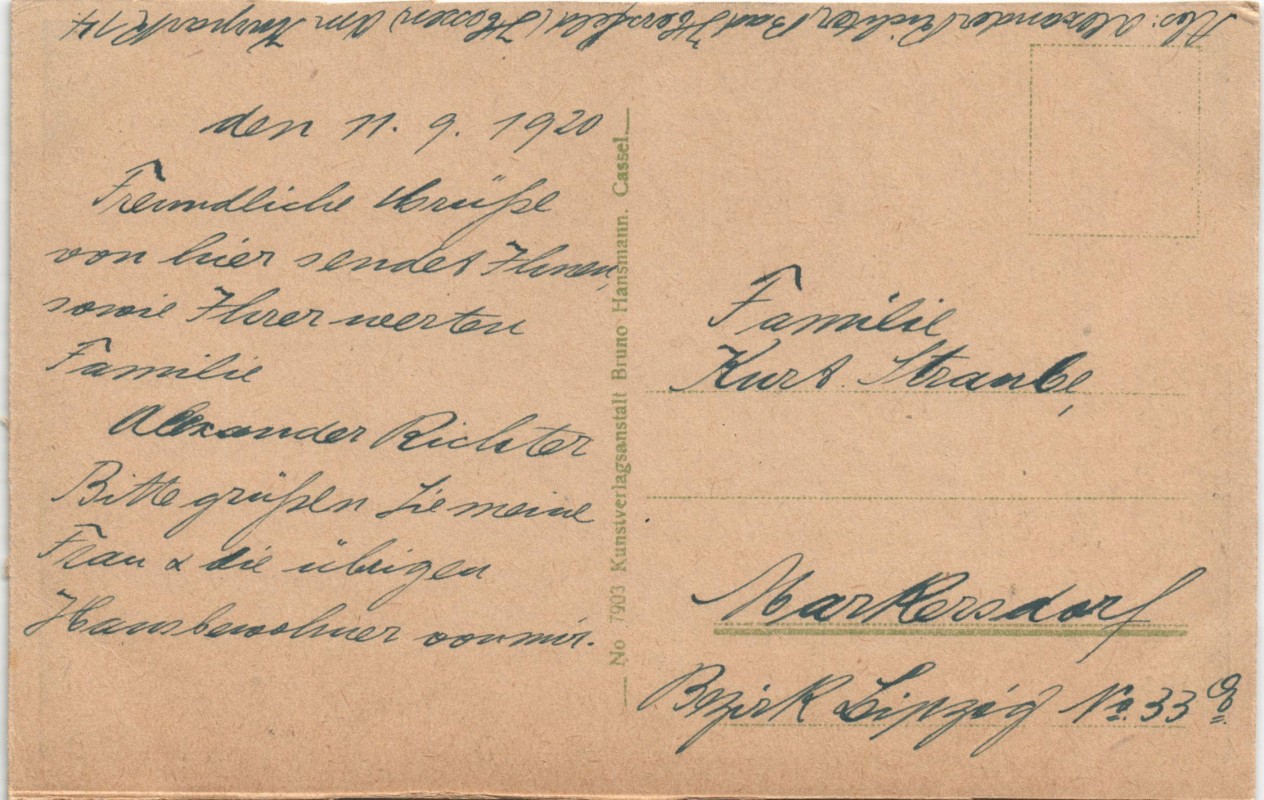 Abs: Alexander Richter, Bad Hersfeld (Hessen) Am Kurpark 14
den 11. 9. 1920
Freundliche Grüße
von hier sendet Ihnen,
sowie Ihrer werten
Familie
Alexander Richter
Bitte grüßen Sie meine
Frau & die übrigen
Hausbewohner von mir.
No 7903 Kunstverlagsanstalt Bruno Hansmann. Cassel.
Familie
Kurt Straube,
Markersdorf
Bezirk Leipzig No. 33